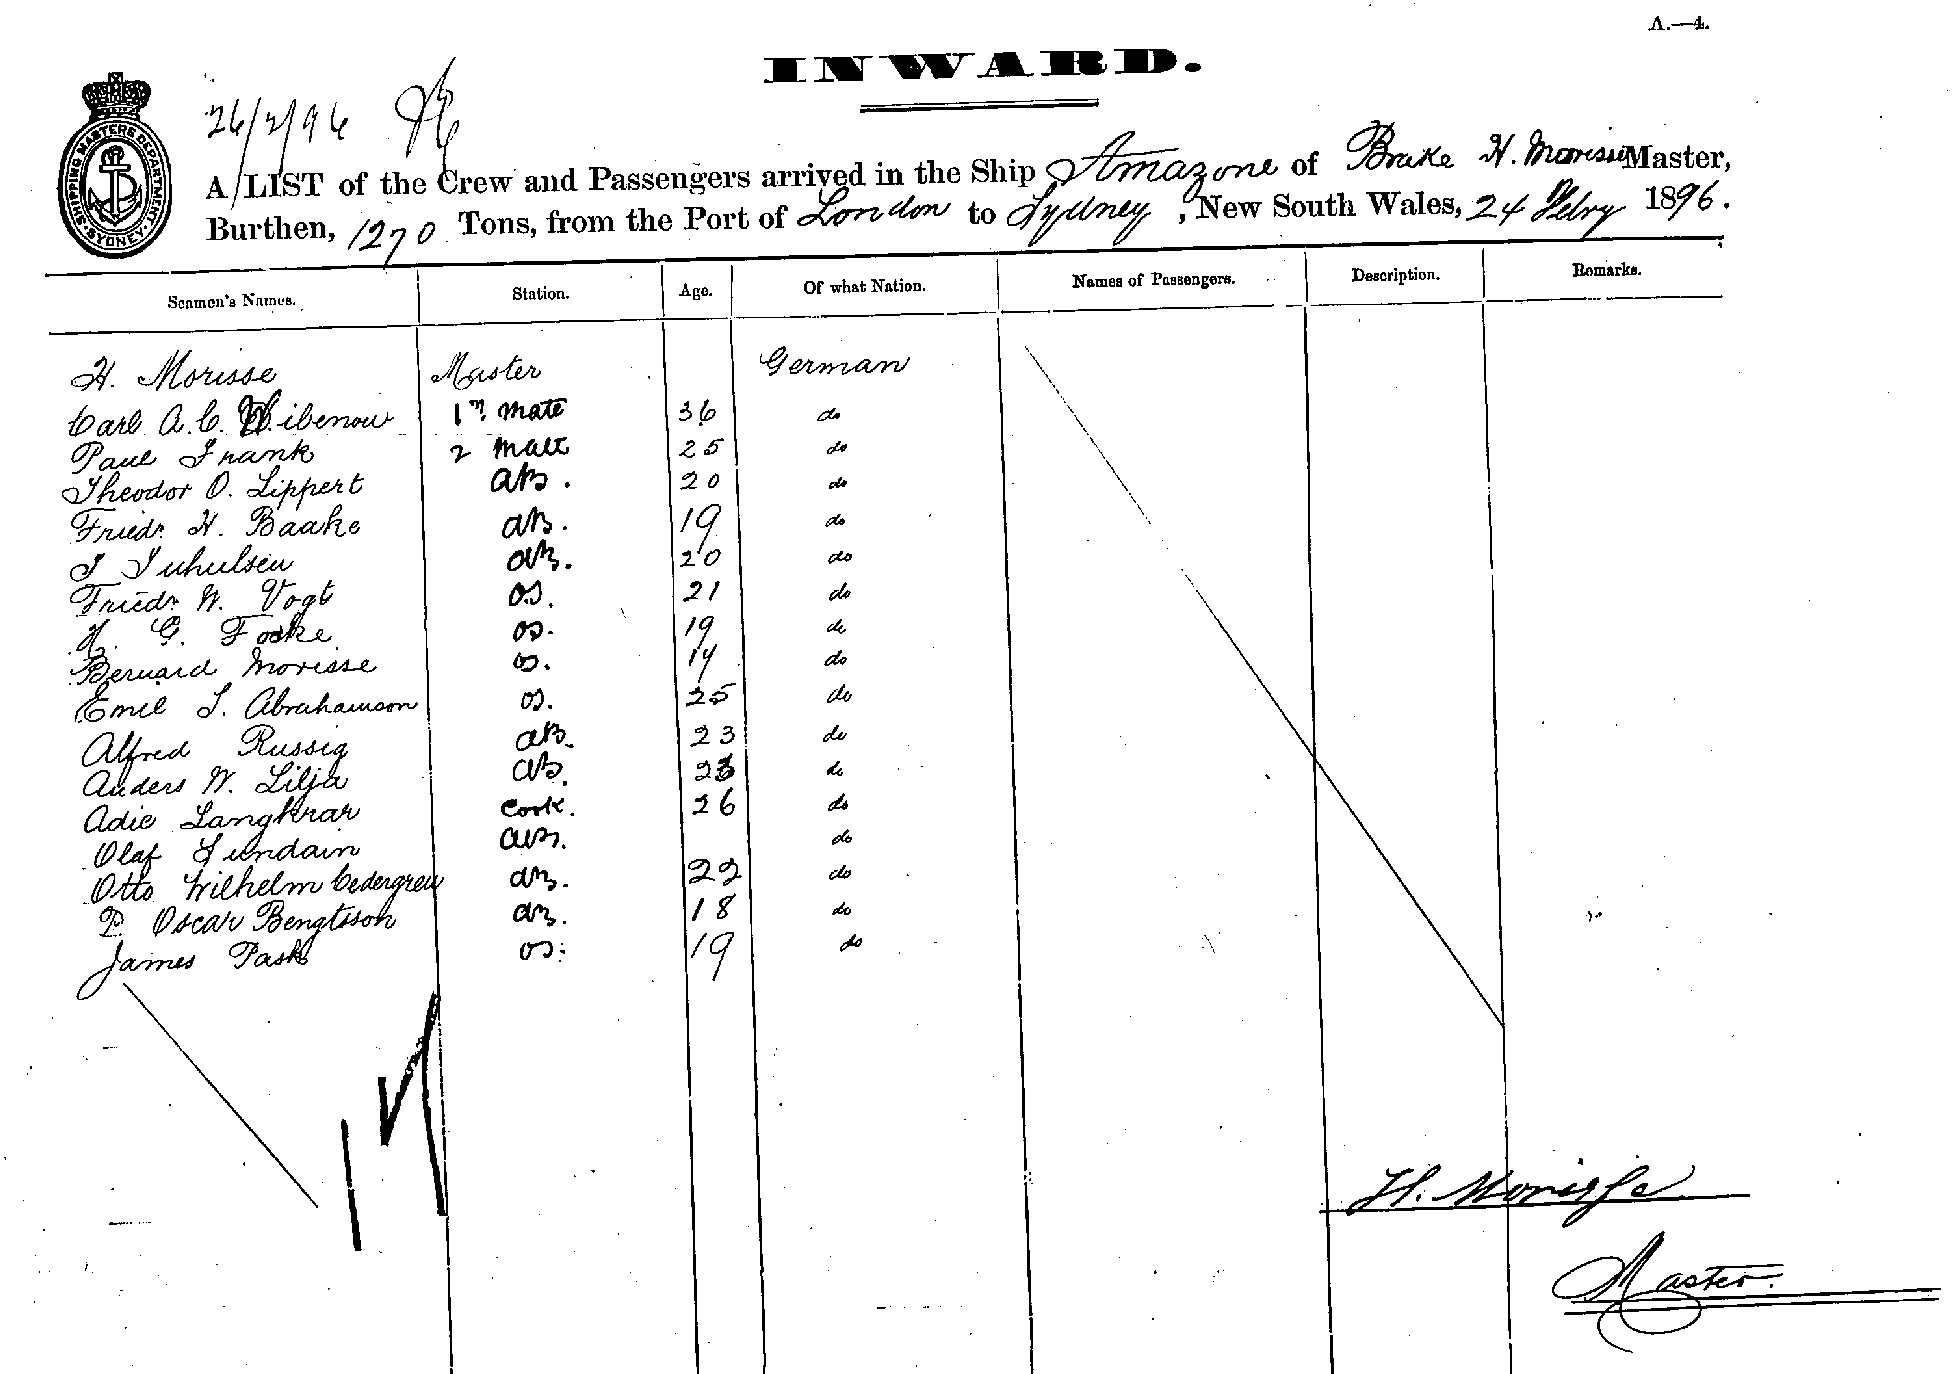 A.—4.
INWARD.
26/2/96
SHIPPING MASTERS DEPARTMENT SYDNEY
A LIST of the Crew and Passengers arrived in the Ship Amazone of Brake H. Morisse Master,
Burthen, 1270 Tons, from the Port of London to Sydney, New South Wales, 24 Febry 1896.
Seamen's Names. Station. Age. Of what Nation. Names of Passengers. Description. Remarks.
H. Morisse Master German
Carl A. C. Wibenow 1st Mate 36 do
Paul Frank 2 Mate 25 do
Theodor O. Lippert AB. 20 do
Friedr. H. Baake AB. 19 do
AB. 20 do
Friedr. W. Vogt OS. 21 do
H. G. Focke OS. 19 do
Bernard Morisse OS. 14 do
Emil I. Abrahamson OS. 25 do
Alfred Russig AB. 23 do
Anders W. Lilja AB. 23 do
Adie Langkrar Cook. 26 do
Olaf Lundain AB. do
Otto Wilhelm Cedergren AB. 22 do
P. Oscar Bengtsson AB. 18 do
James Pask OS. 19 do
17
H. Morisse
Master.